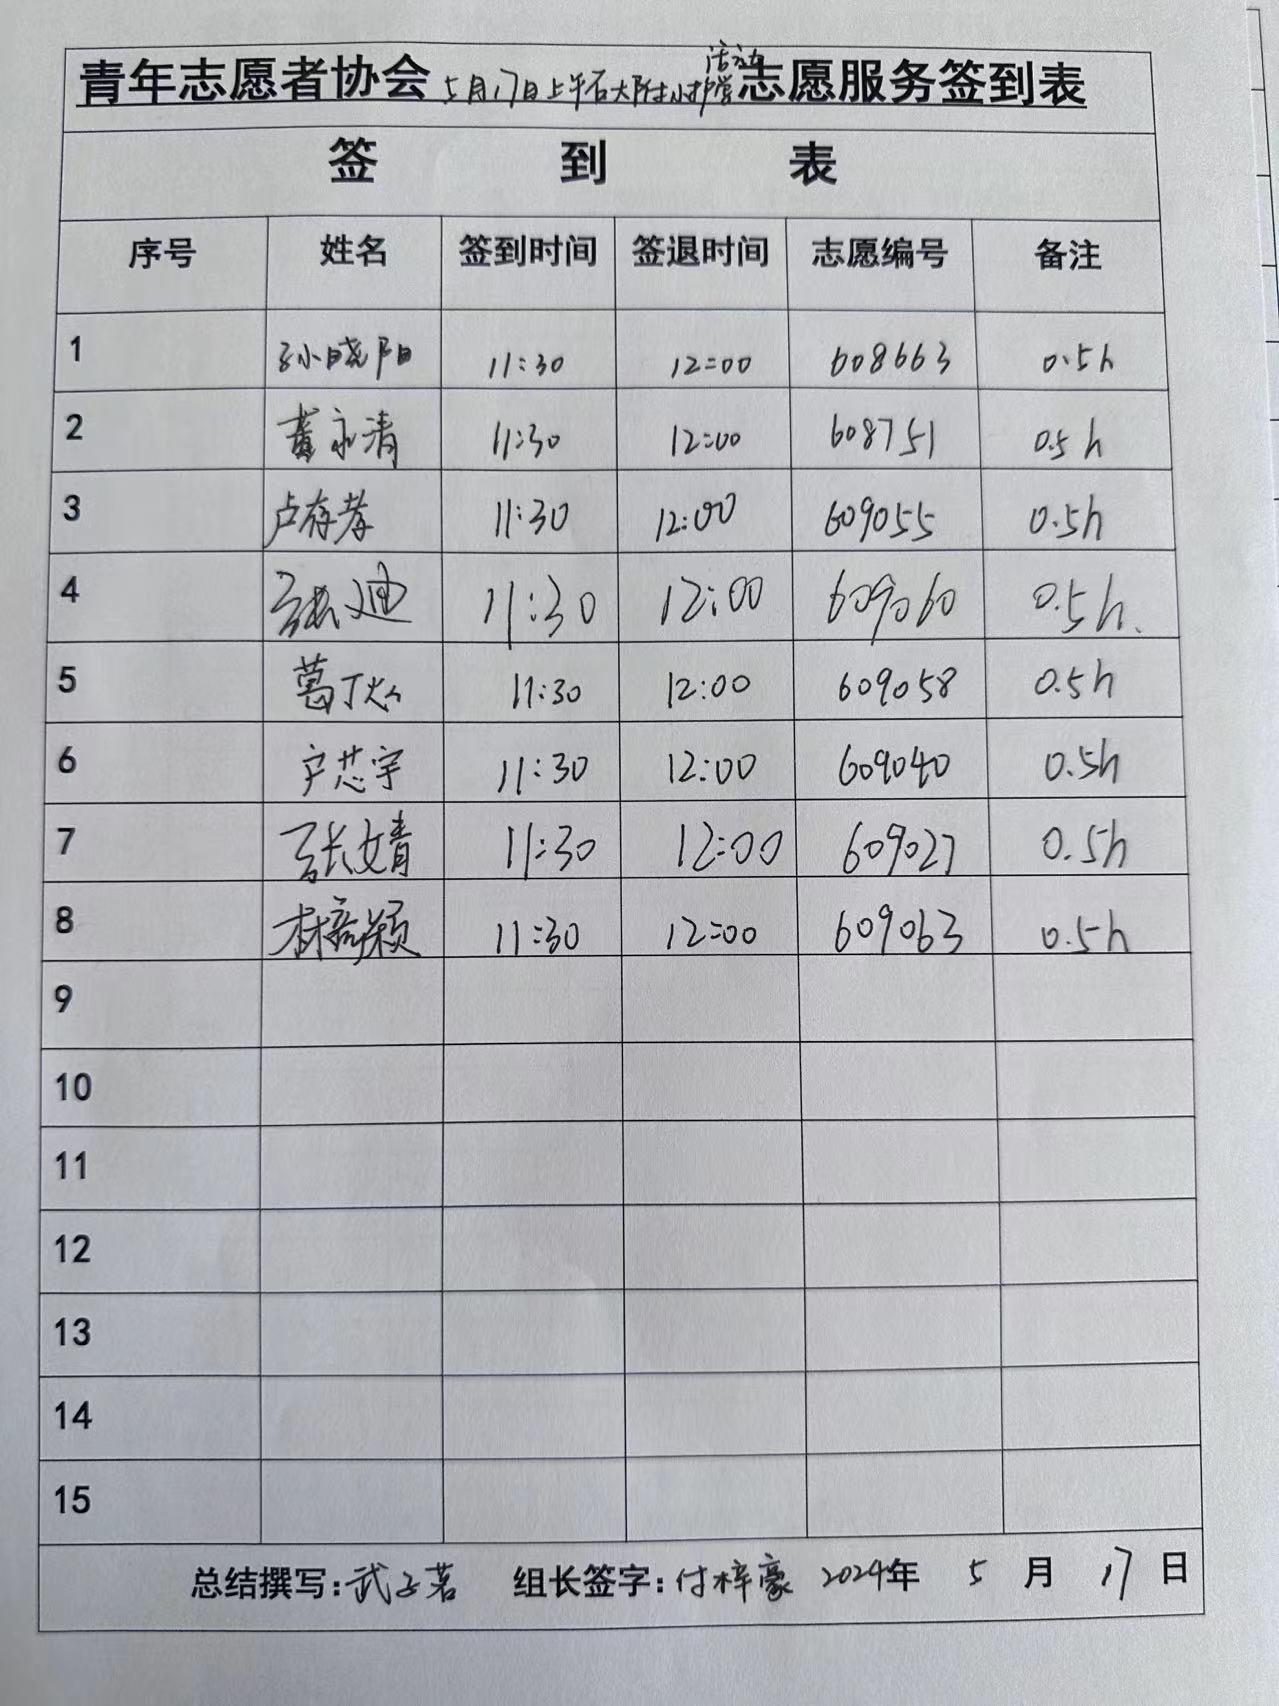 青年志愿者协会5月17日上午石大附小护学活动志愿服务签到表
签 到 表
序号 姓名 签到时间 签退时间 志愿编号 备注
1 孙晓阳 11:30 12:00 608663 0.5h
2 董永清 11:30 12:00 608751 0.5h
3 卢存孝 11:30 12:00 609055 0.5h
4 张迪 11:30 12:00 609060 0.5h.
5 葛丁 11:30 12:00 609058 0.5h
6 户芯宇 11:30 12:00 609040 0.5h
7 张文婧 11:30 12:00 609027 0.5h
8 林颖 11:30 12:00 609063 0.5h
9
10
11
12
13
14
15
总结撰写:武子茗 组长签字:付梓豪 2024年 5 月 17 日